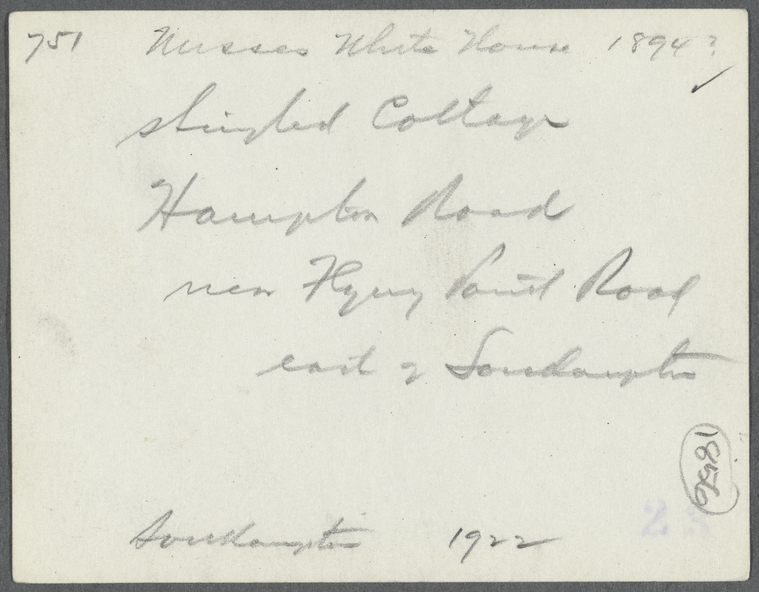 751 Misses White House 1894?
shingled Cottage
Hampton Road
near Flying Point Road
east of Southampton
1856
Southampton 1922